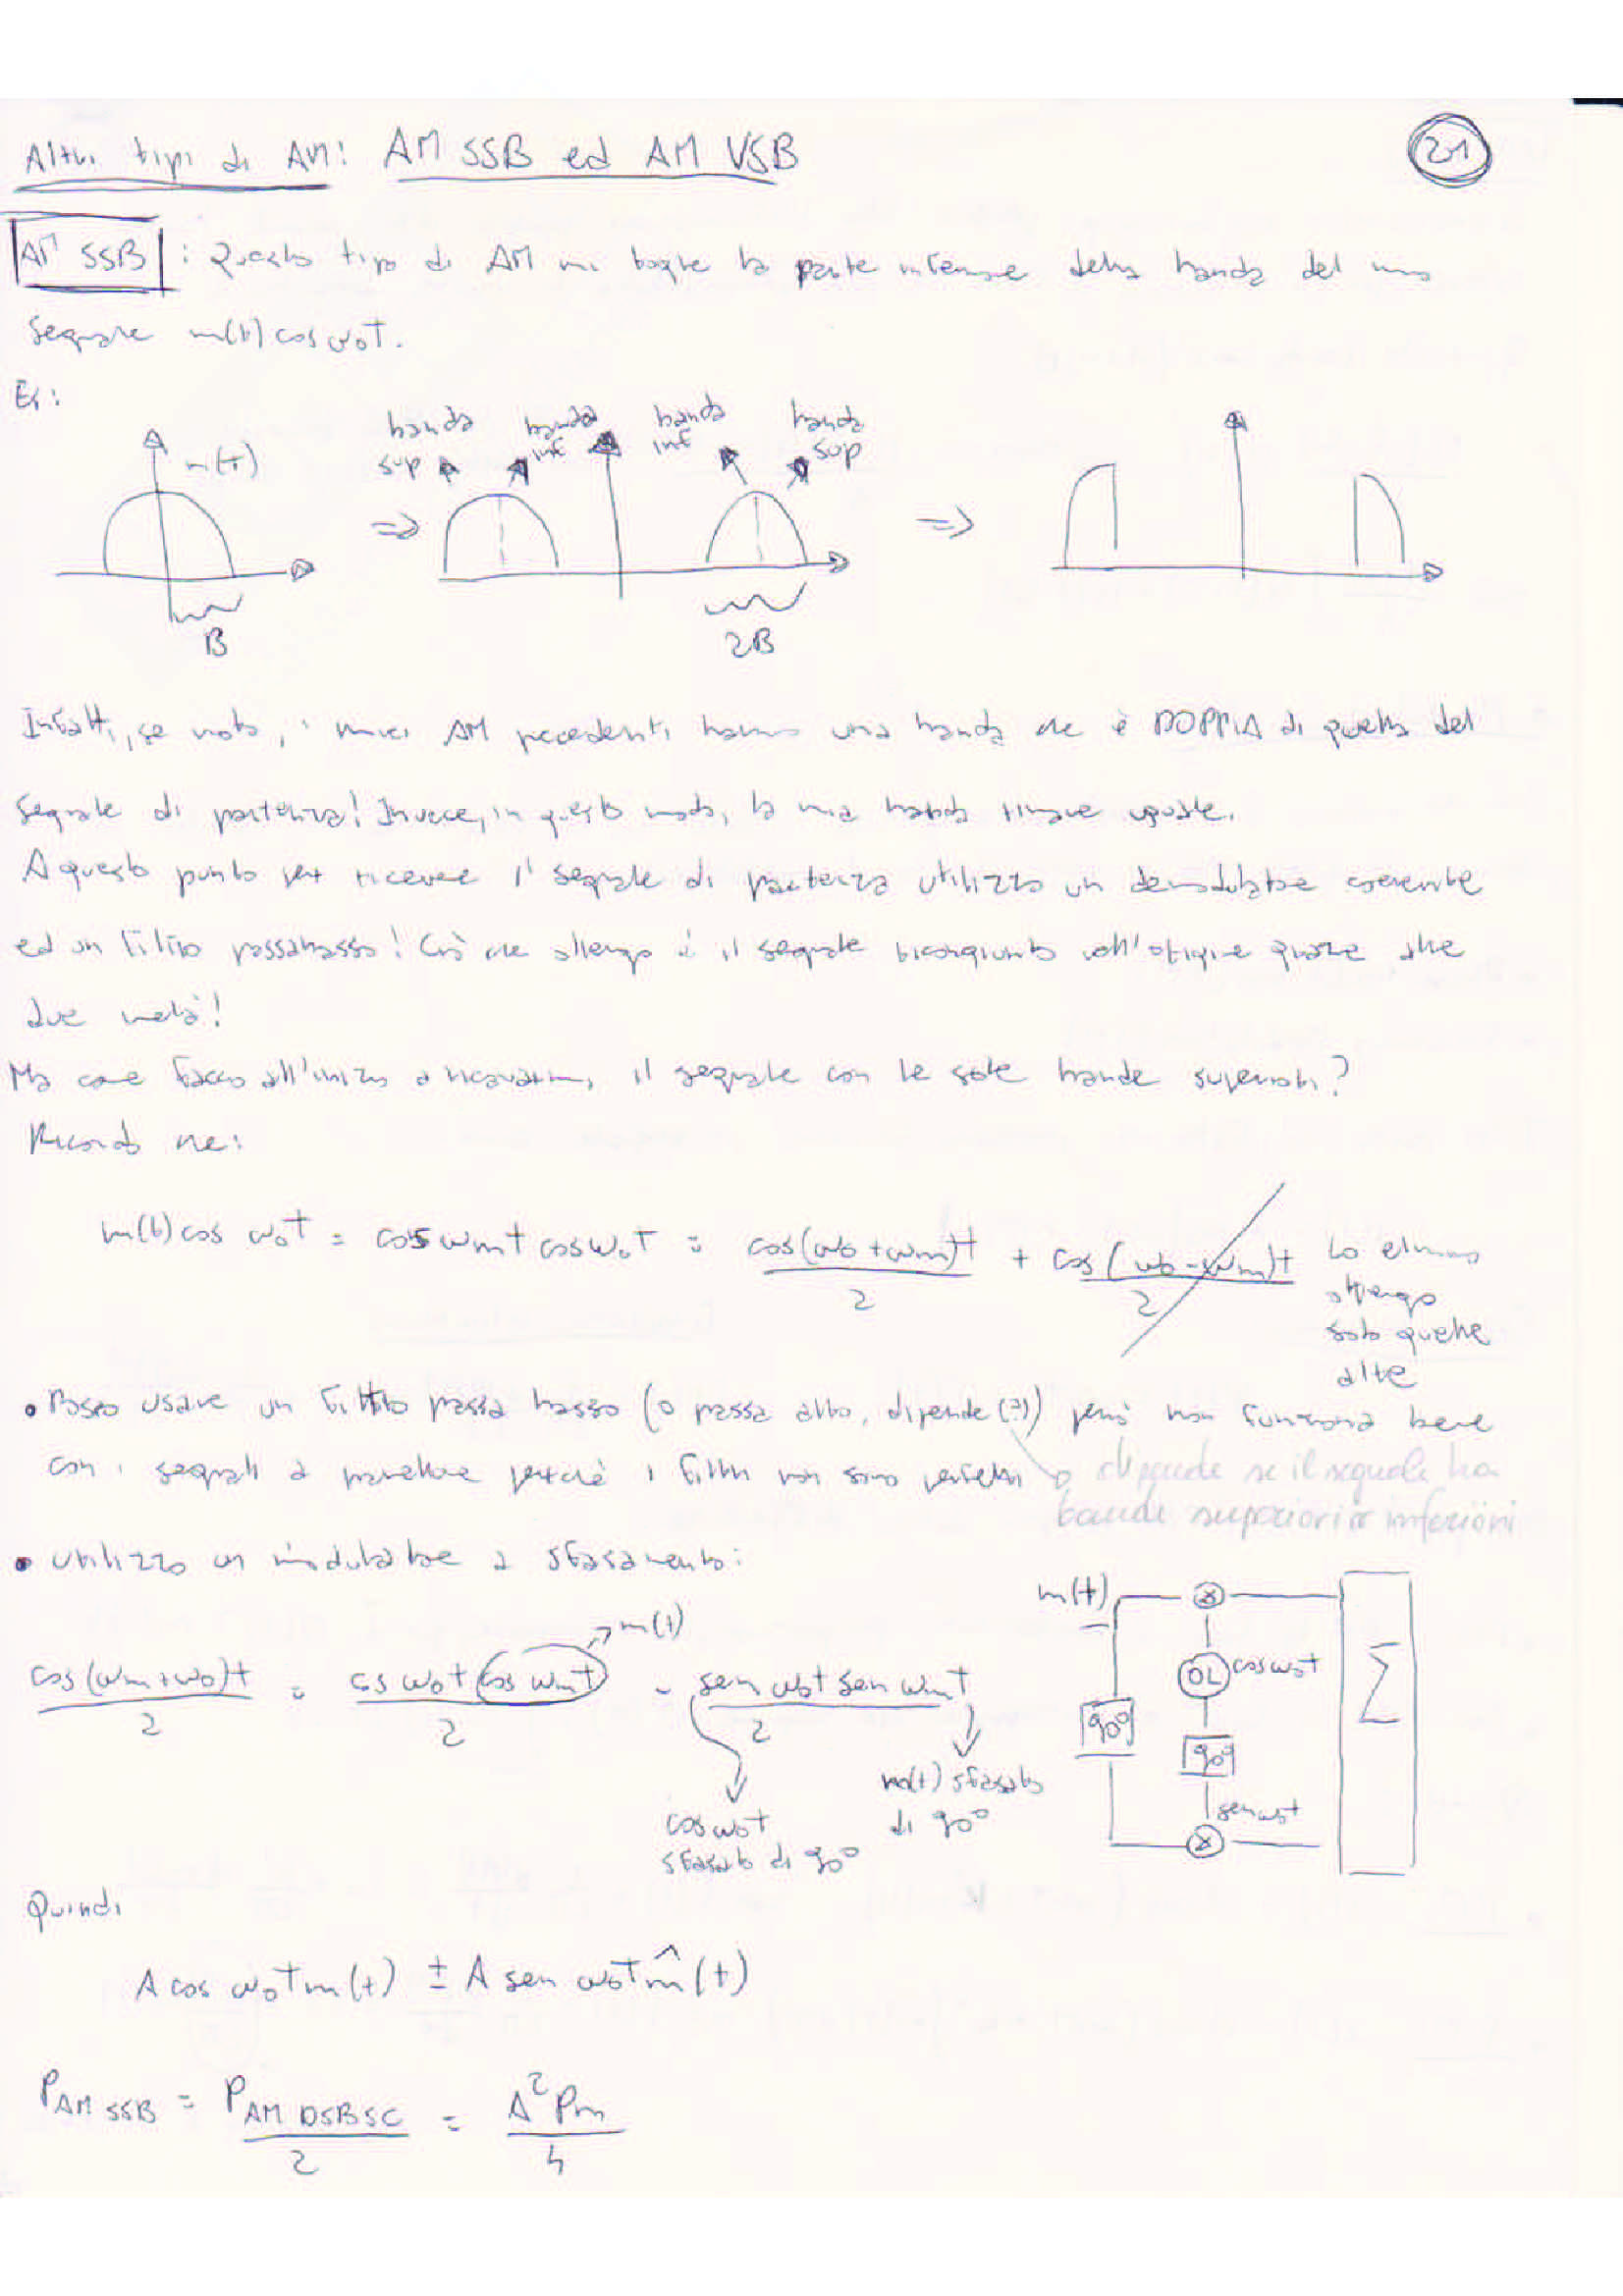 Altri tipi di AM: AM SSB ed AM VSB
21
AM SSB : Questo tipo di AM mi toglie la parte inferiore della banda del mio
segnale m(t) cos ω₀t.
Es:
m(t)
B
banda sup
banda inf
banda inf
banda sup
2B
⇒
⇒
Infatti, se noto, i miei AM precedenti hanno una banda che è DOPPIA di quella del
segnale di partenza! Invece, in questo modo, la mia banda rimane uguale.
A questo punto per ricevere il segnale di partenza utilizzo un demodulatore coerente
ed un filtro passabasso! Ciò che ottengo è il segnale ricongiunto all'origine grazie alle
due metà!
Ma come faccio all'inizio a ricavarmi il segnale con le sole bande superiori?
Ricordo che:
m(t) cos ω₀t = cos ωmt cos ω₀t = cos(ω₀+ωm)t / 2 + cos(ω₀-ωm)t / 2 Lo elimino
ottengo
solo quelle
alte
• Posso usare un filtro passa basso (o passa alto, dipende (?)) però non funziona bene
con i segnali a perché i filtri non sono perfetti dipende se il segnale ha
bande superiori o inferiori
• Utilizzo un modulatore a sfasamento:
cos(ωm+ω₀)t / 2 = cos ω₀t cos ωmt / 2 - sen ω₀t sen ωmt / 2
m(t)
cos ω₀t
sfasato di 90°
m(t) sfasato
di 90°
m(t)
×
OL cos ω₀t
90°
90°
sen ω₀t
×
Σ
Quindi
A cos ω₀t m(t) ± A sen ω₀t m̂(t)
P AM SSB = P AM DSBSC / 2 = A² Pm / 4